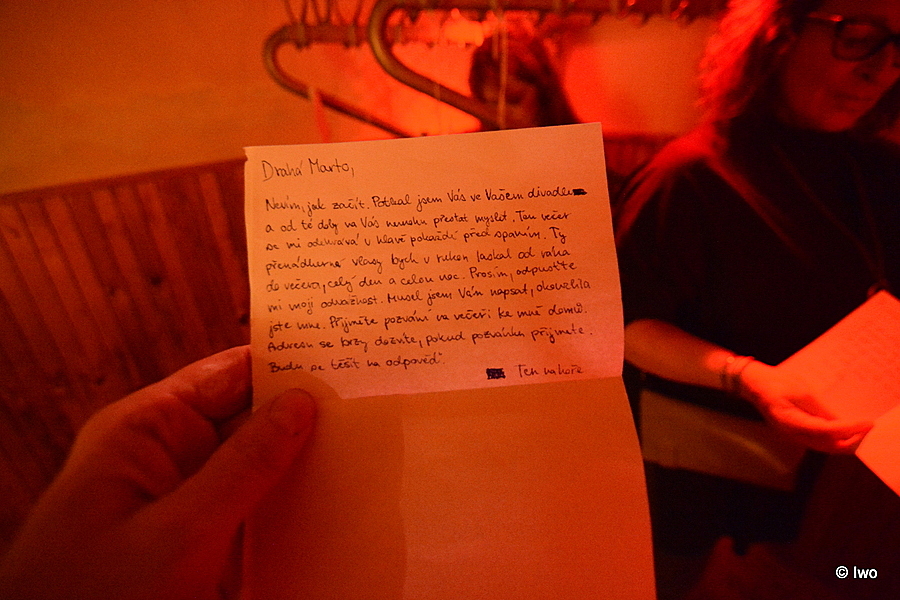 Drahá Marto,
Nevím, jak začít. Potkal jsem Vás ve Vašem divadle
a od té doby na Vás nemohu přestat myslet. Ten večer
se mi odehrává v hlavě pokaždé před spaním. Ty
přenádherné vlasy bych v rukou laskal od rána
do večera, celý den a celou noc. Prosím, odpusťte
mi moji odvážnost. Musel jsem Vám napsat, okouzlila
jste mne. Přijměte pozvání na večeři ke mně domů.
Adresu se brzy dozvíte, pokud pozvánku přijmete.
Budu se těšit na odpověď.
Ten nahoře
© Iwo